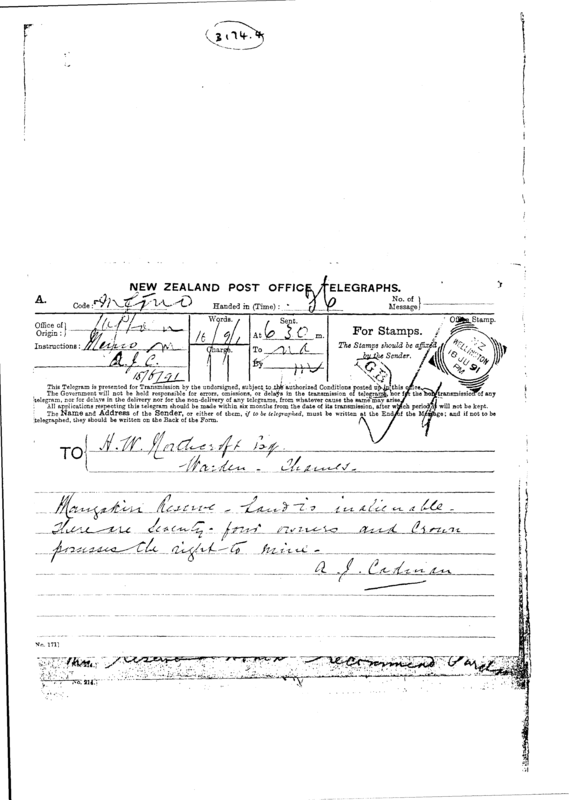 3174.4
NEW ZEALAND POST OFFICE TELEGRAPHS.
A. Code: Handed in (Time): No. of Message
Office of Origin: Words. Sent. Office Stamp.
At 6 30 m. For Stamps.
Instructions: Charge. To The Stamps should be affixed by the Sender.
A.J.C. By
N.Z WELLINGTON 18 JU 91 PM
G.B
This Telegram is presented for Transmission by the undersigned, subject to the authorised Conditions posted up in this office.
The Government will not be held responsible for errors, omissions, or delays in the transmission of telegrams, nor for the non-delivery of any
telegram, nor for delays in the delivery nor for the non-delivery of any telegrams, from whatever cause the same may arise.
All applications respecting this telegram should be made within six months from the date of its transmission, after which period it will not be kept.
The Name and Address of the Sender, or either of them, if to be telegraphed, must be written at the End of the Message; and if not to be
telegraphed, they should be written on the Back of the Form.
TO H. W. Northcroft Esq.
Warden - Thames.
Reserve - Land is inalienable.
There are seventy-four owners and Crown
possesses the right to mine.
A. J. Cadman
No. 171]
reserve recommend
No. 214.